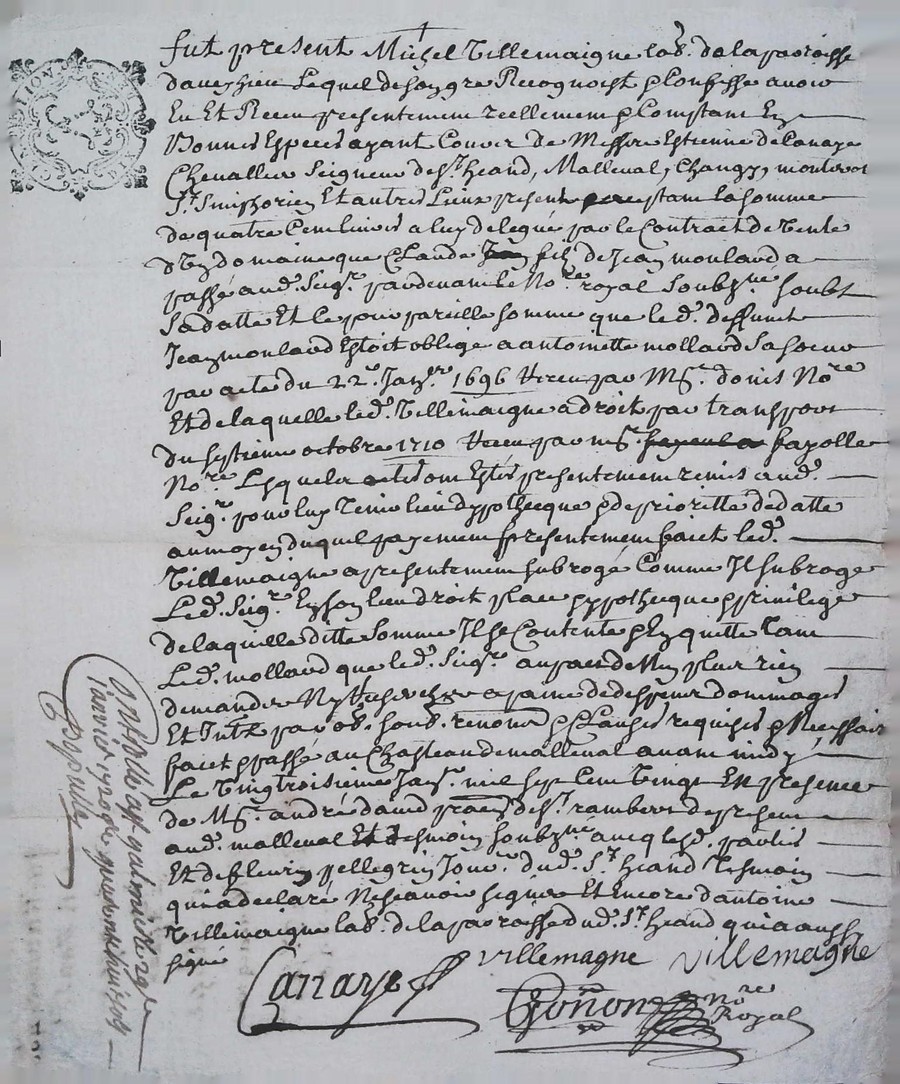 fut present Michel Villemaigne lab.r de la paroisse
d'aveyzieu Lequel de son gre Recognoist & Confesse avoir
Eu Et Receu presentement reellement & Comptant En
Bonnes Especes ayant Cours de Messire Estienne de Canaye
Chevallier Seigneur de St. heand, Malleval, Changy,
St. Simphorien Et autres Lieux present la somme
de quatre Cent livres a luy deleguée par le Contract de vente
d'un domaine que Claude fils de Jean moulard a
passé aud. Seigr. pardevant le Nore. royal Soubzné. Soubz
Sa datte Et le pour pareille somme que led. deffunct
Jean moulard Estoit obligé a antoinette mollard Sa soeur
par acte du 22e. Janer. 1696 Receu par Me. donis Nore
Et de laquelle led. Villemaigne a droit par transport
du septieme octobre 1710 Receu par me. fayolle
Nore. Lesquels actes ont Estés presentement remis aud.
Seigr. pour luy tenir lieu d'ypothecque & de prioritte de datte
au moyen duquel payement presentement faict led.
Villemaigne a presentement subrogé Comme Il subroge
Led. Seigr. En son lieu droit place ypothecque & privilege
de laquelle ditte Somme Il se Contente & En quitte tant
Led. mollard que led. Seigr. an pact de N'en plus rien
demander Ny a paine de despens dommages
Et Intz. par ob. soub. renon. & Clauses requises & Necessaires
faict & passé au Chasteau de malleval avant midy
Le Vingtroisieme Janr. mil sept Cent Vingt En presence
de Me. andré david de St. rambert de present
aud. malleval Et tesmoin soubzné. avecq lesd. parties
Et de fleury pellegrin dud. St. heand tesmoin
qui a declaré Ne sçavoir signer Et Encore d'antoine
Villemaigne lab. de la paroisse dud. St. heand qui a aussy
signé
Canaye villemagne villemaigne
Gonon nore Royal
Controllé a St galmier le 29e
janvier 1720